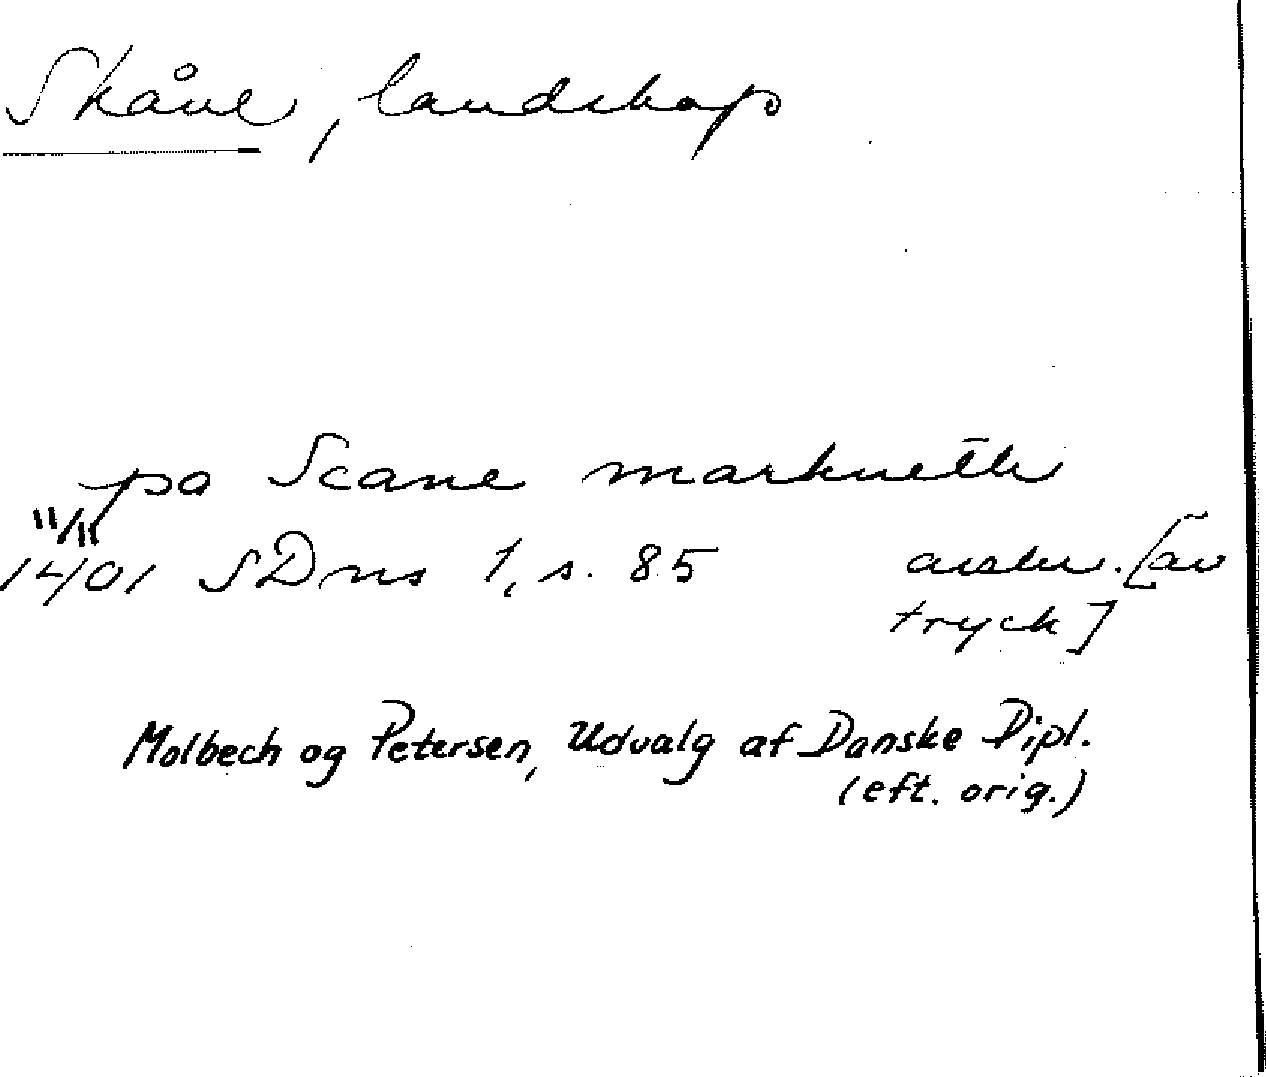 Skåne, landskap
pa Scane markneth
11/11
1401 SDns 1, s. 85 avskr. [av
tryck]
Molbech og Petersen, Udvalg af Danske Dipl.
(eft. orig.)